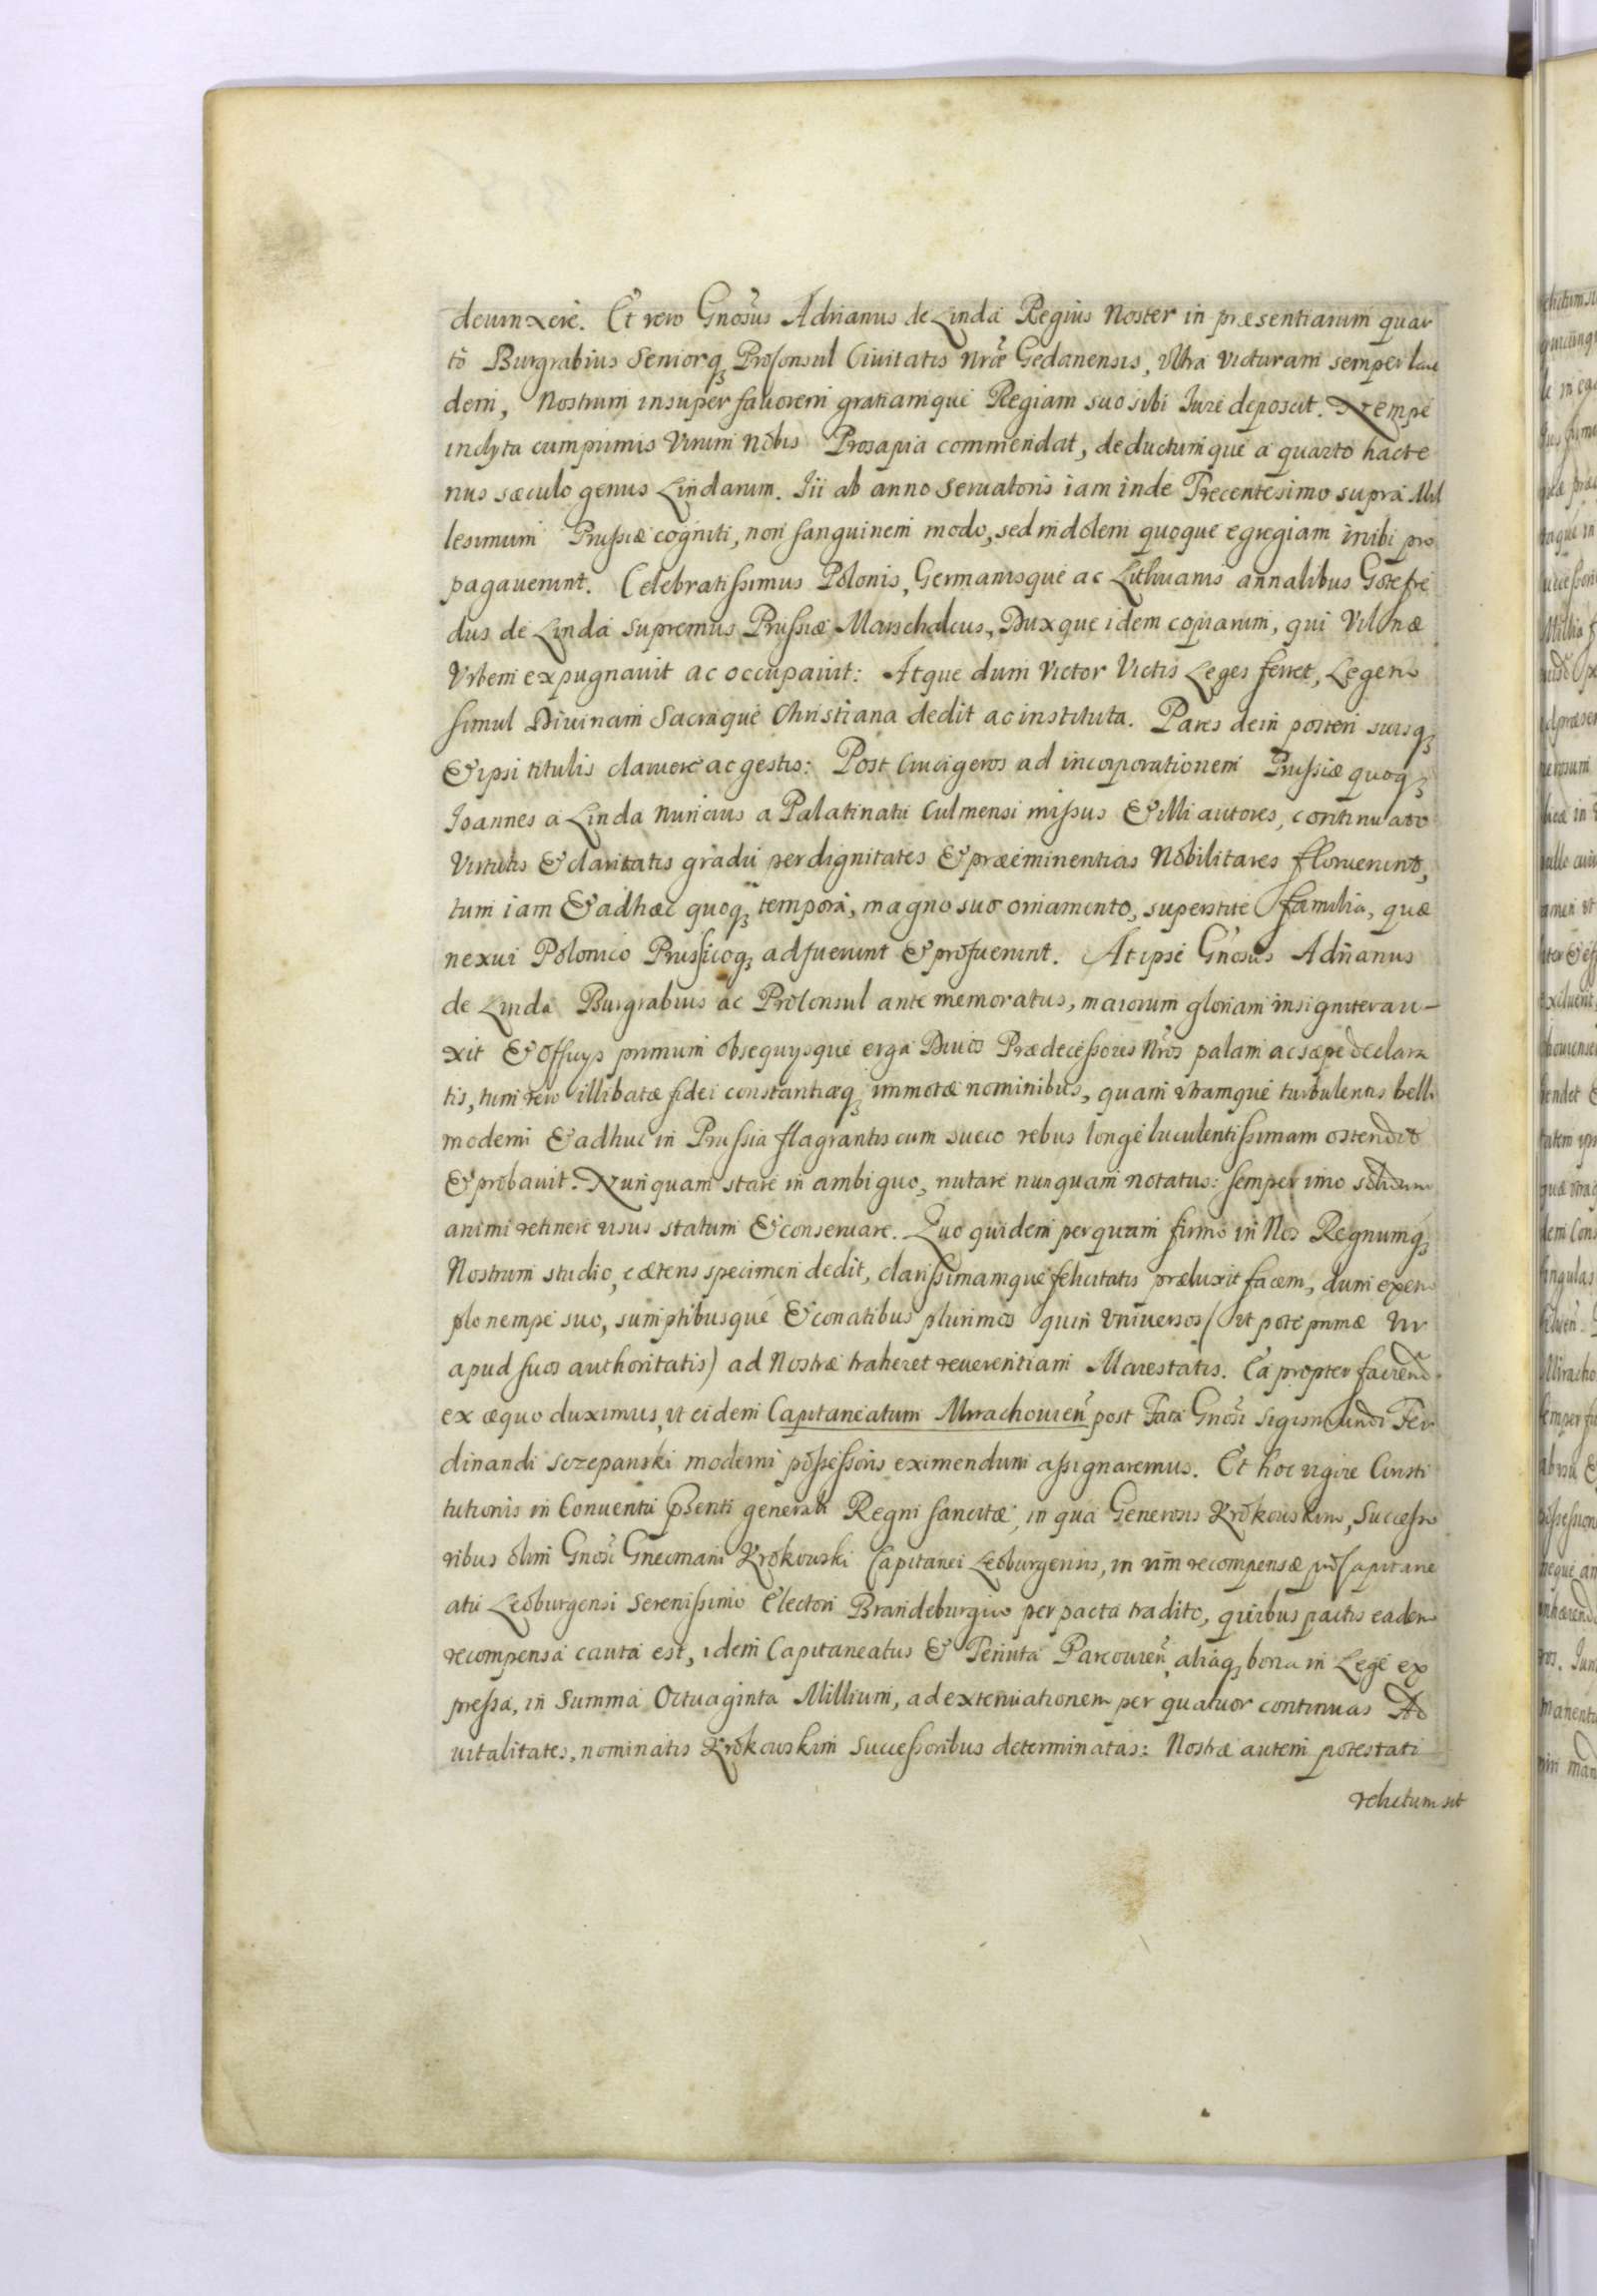 deuinxere. Et vero Gnosus Adrianus de Linda Regius Noster in præsentiarum quar
to Burgrabius Seniorq₃ Proconsul Ciuitatis Nræ Gedanensis, vltra victuram semper lau
dem, Nostrum insuper fauorem gratiamque Regiam suo sibi Iure deposcit. Nempe
inclyta cumprimis Virum Nobis Prosapia commendat, deductumque a quarto hacte
nus sæculo genus Lindarum. Iii ab anno Seruatoris iam inde Trecentesimo supra Mil
lesimum Prussiæ cogniti, non sanguinem modo, sed indolem quoque egregiam inibi pro
pagauerunt. Celebratissimus Polonis, Germanisque ac Lithuanis annalibus Gotefre
dus de Linda supremus Prussiæ Marschalcus, Duxque idem copiarum, qui Vilnæ
Vrbem expugnauit ac occupauit: Atque dum Victor Victis Leges ferret, Legem
simul Diuinam Sacraque Christiana dedit ac instituta. Pares dein posteri suisq₃
& ipsi titulis claruere ac gestis: Post Crucigeros ad incorporationem Prussiæ quoq₃
Ioannes a Linda Nuncius a Palatinatu Culmensi missus & illi autores, continuato
Virtutis & claritatis gradu per dignitates & præeminentias Nobilitares floruerunt,
tum iam & adhæc quoq₃ tempora, magno suo ornamento, superstite familia, quæ
nexui Polonico Prussicoq₃ adfuerunt & profuerunt. At ipse Gnosus Adrianus
de Linda Burgrabius ac Proconsul ante memoratus, maiorum gloriam insigniter au-
xit & officys primum obsequysque erga Diuos Prædecessores Nros palam ac sæpe declara
tis, tum vero illibatæ fidei constantiæq₃ immotæ nominibus, quam vtramque turbulentis belli
moderni & adhuc in Prussia flagrantis cum sueco rebus longe luculentissimam ostendit
& probauit. Nunquam stare in ambiguo, nutare nunquam notatus: semper imo solidum
animi retinere visus statum & conseruare. Quo quidem perquam firmo in Nos Regnumq₃
Nostrum studio, cæteris specimen dedit, clarissimamque felicitatis præluxit facem, dum exem
plo nempe suo, sumptibusque & conatibus plurimos quin Vniuersos (vt pote primæ Vir
apud suos authoritatis) ad Nostræ traheret reuerentiam Maiestatis. Ea propter faciend
ex æquo duximus, vt eidem Capitaneatum Mirachouien post Fata Gnosi Sigismundi Fer
dinandi Sczepanski moderni possessoris eximendum assignaremus. Et hoc vigore Consti
tutionis in Conuentu pnti generali Regni sancitæ, in qua Generosis Krokouskim, Successo
ribus olim Gnosi Gnecmani Krokouski Capitanei Leoburgensis, in vim recompensæ pro Capitane
atu Leoburgensi Serenissimo Electori Brandeburgico per pacta tradito, quibus pactis eadem
recompensa cauta est, idem Capitaneatus & Tenuta Parcouien, aliaq₃ bona in Lege ex
pressa, in Summa Octuaginta Millium, ad extenuationem per quatuor continuas Ad
uitalitates, nominatis Krokouskim Successoribus determinatas: Nostræ autem potestati
relictum sit